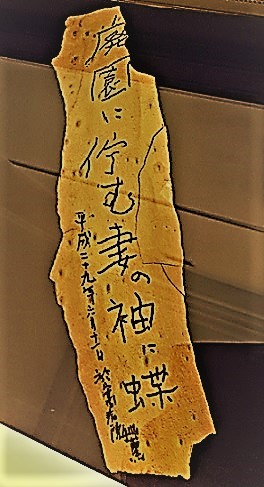 廃園に佇む妻の袖に蝶
平成二十九年六月十一日 於